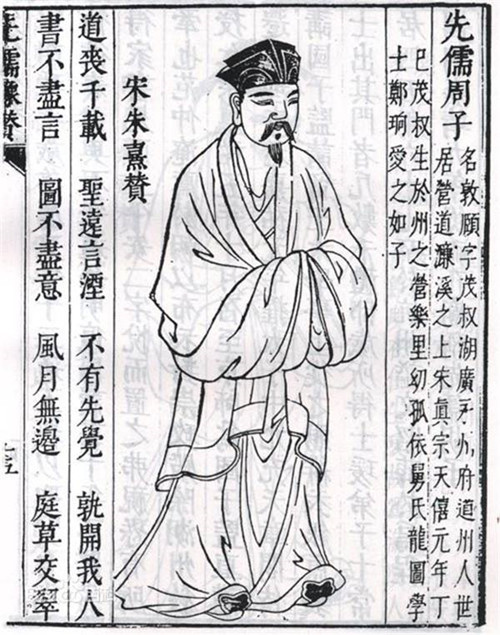 先儒周子
名敦願字茂叔湖廣永州府道州人世
居營道濂溪之上宋真宗天僖元年丁
巳茂叔生於州之營樂里幼孤依舅氏龍圖學
士鄭珦愛之如子
宋朱熹贊
道喪千載 聖遠言湮 不有先覺 孰開我人
書不盡言 圖不盡意 風月無邊 庭草交翠
儒像贊